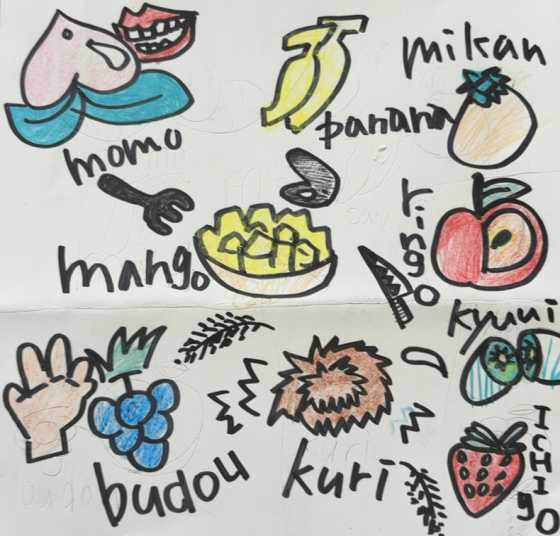 mikan
banana
momo
ringo
mango
kyuui
ICHIgo
budou
kuri